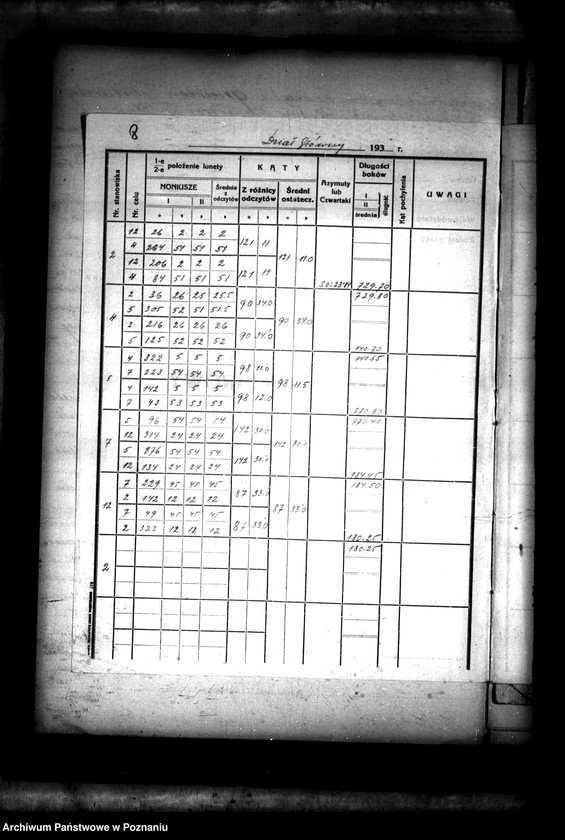 8
Dział Główny 193 r.
Nr. stanowiska Nr. celu 1-e 2-e położenie lunety KĄTY Azymuty lub Czwartaki Długości boków Kąt pochylenia UWAGI
NONIUSZE Średnia z odczytów Z różnicy odczytów Średni ostatecz. I II średnia długość
I II
° ' ' ' ° ' ° '
2 12 26 2 2 2 121 11 121 11.0
4 264 51 51 51
12 206 2 2 2 121 11
4 84 51 51 51 729.70
4 2 36 26 25 25.5 90 34.0 90 34.0 729.80
5 305 52 51 51.5
2 216 26 26 26 90 34.0
5 125 52 52 52 140.70
5 4 322 5 5 5 98 11.0 98 11.5 140.65
7 223 54 54 54
4 142 5 5 5 98 12.0
7 43 53 53 53 670.80
7 5 96 54 54 54 142 30.0 142 30.0 670.40
12 314 24 24 24
5 276 54 54 54 142 30.0
12 134 24 24 24 184.45
12 7 229 45 45 45 87 33.0 87 33.0 184.50
2 142 12 12 12
7 49 45 45 45 87 33.0
2 322 12 12 12 180.25
2 180.25
Archiwum Państwowe w Poznaniu